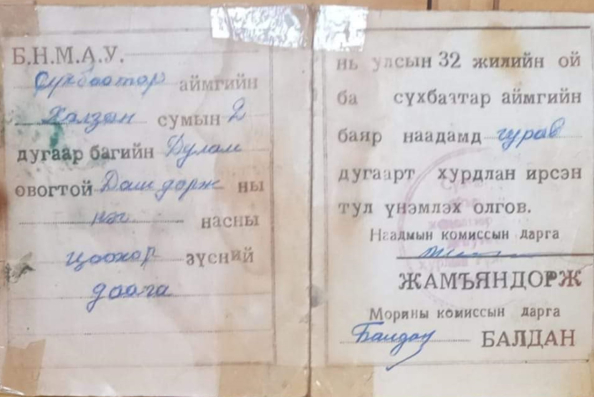 Б.Н.М.А.У.
Сүхбаатар аймгийн
Халзан сумын 2
дугаар багийн Дулам
овогтой Дашдорж ны
нэг насны
цоохор зүсний
даага
нь улсын 32 жилийн ой
ба сүхбаатар аймгийн
баяр наадамд гурав
дугаарт хурдлан ирсэн
тул үнэмлэх олгов.
Наадмын комиссын дарга
ЖАМЪЯНДОРЖ
Морины комиссын дарга
Балдан БАЛДАН